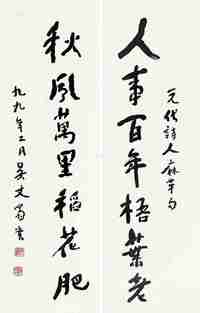 人事百年梧葉老
元代詩人麻革句
秋風萬里稻花肥
一九九一年二月吳丈蜀書